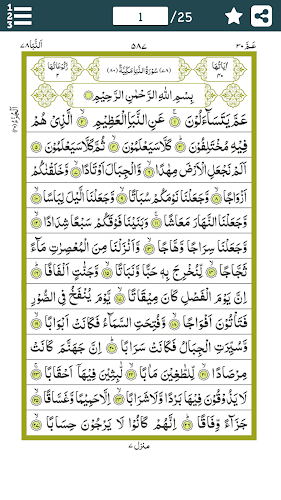 1 2 3
1 /25
عمّ ٣٠
٥٨٧
النّبا ٧٨
اٰیَاتُهَا ٤٠
(٧٨) سُوْرَةُ النَّبَاِ مَكِّیَّةٌ (٨٠)
رُكُوْعَاتُهَا ٢
بِسْمِ اللّٰهِ الرَّحْمٰنِ الرَّحِیْمِ
عَمَّ یَتَسَآءَلُوْنَ ١ عَنِ النَّبَاِ الْعَظِیْمِ ٢ الَّذِیْ هُمْ
فِیْهِ مُخْتَلِفُوْنَ ٣ كَلَّا سَیَعْلَمُوْنَ ٤ ثُمَّ كَلَّا سَیَعْلَمُوْنَ ٥
اَلَمْ نَجْعَلِ الْاَرْضَ مِهٰدًا ٦ وَّالْجِبَالَ اَوْتَادًا ٧ وَّخَلَقْنٰكُمْ
اَزْوَاجًا ٨ وَّجَعَلْنَا نَوْمَكُمْ سُبَاتًا ٩ وَّجَعَلْنَا الَّیْلَ لِبَاسًا ١٠
وَّجَعَلْنَا النَّهَارَ مَعَاشًا ١١ وَّبَنَیْنَا فَوْقَكُمْ سَبْعًا شِدَادًا ١٢
وَّجَعَلْنَا سِرَاجًا وَّهَّاجًا ١٣ وَّاَنْزَلْنَا مِنَ الْمُعْصِرٰتِ مَآءً
ثَجَّاجًا ١٤ لِّنُخْرِجَ بِهٖ حَبًّا وَّنَبَاتًا ١٥ وَّجَنّٰتٍ اَلْفَافًا ١٦
اِنَّ یَوْمَ الْفَصْلِ كَانَ مِیْقَاتًا ١٧ یَّوْمَ یُنْفَخُ فِی الصُّوْرِ
فَتَاْتُوْنَ اَفْوَاجًا ١٨ وَّفُتِحَتِ السَّمَآءُ فَكَانَتْ اَبْوَابًا ١٩
وَّسُیِّرَتِ الْجِبَالُ فَكَانَتْ سَرَابًا ٢٠ اِنَّ جَهَنَّمَ كَانَتْ
مِرْصَادًا ٢١ لِّلطّٰغِیْنَ مَاٰبًا ٢٢ لّٰبِثِیْنَ فِیْهَاۤ اَحْقَابًا ٢٣
لَا یَذُوْقُوْنَ فِیْهَا بَرْدًا وَّلَا شَرَابًا ٢٤ اِلَّا حَمِیْمًا وَّغَسَّاقًا ٢٥
جَزَآءً وِّفَاقًا ٢٦ اِنَّهُمْ كَانُوْا لَا یَرْجُوْنَ حِسَابًا ٢٧
منزل ٧